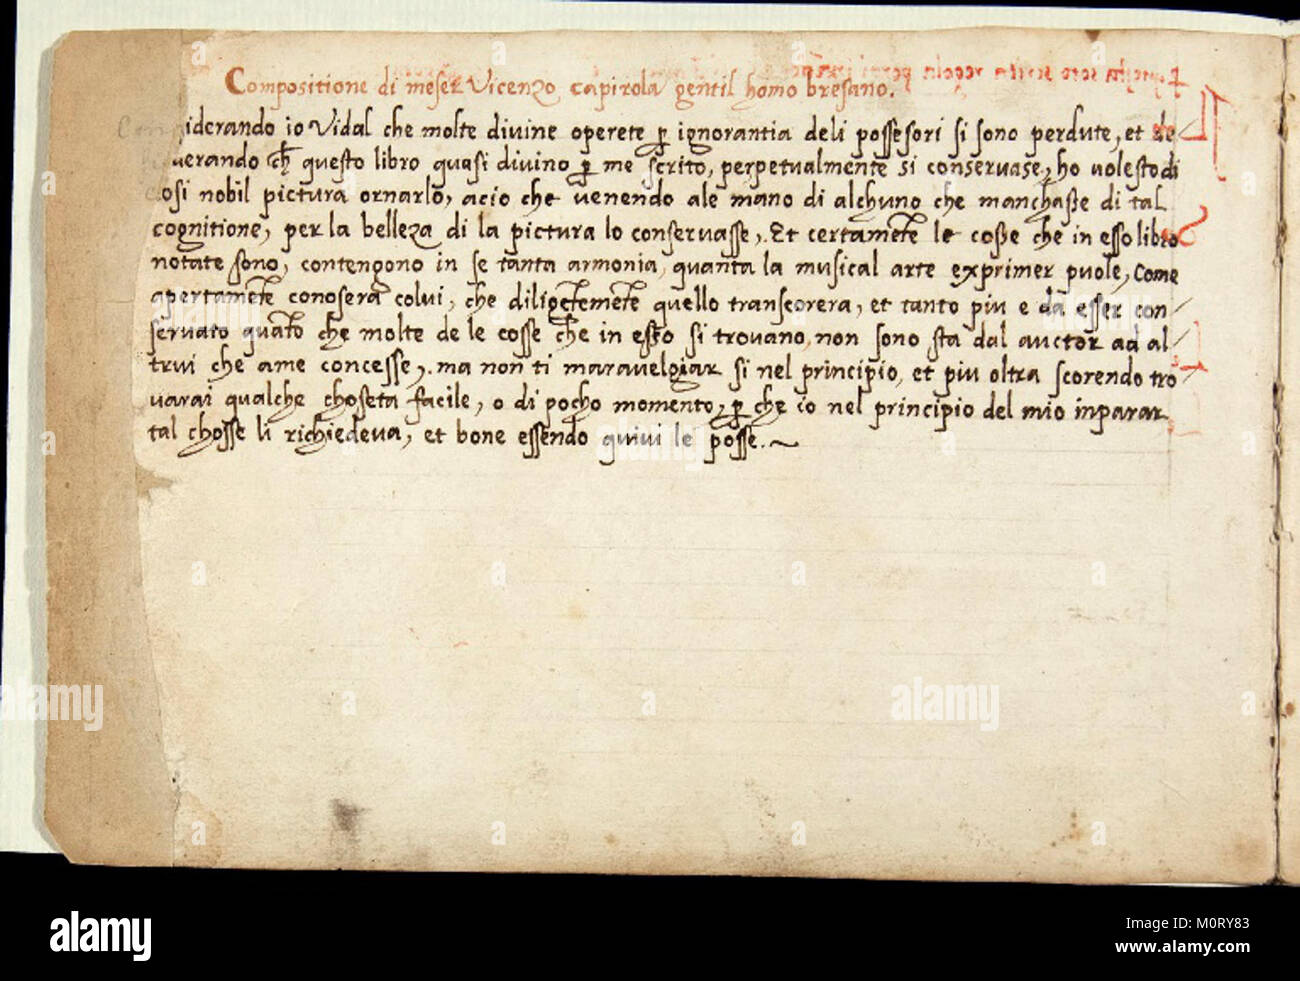 Compositione di meser Vicenzo capirola gentil homo bresano.
Considerando io Vidal che molte divine operete p ignorantia deli possesori si sono perdute, et de
verando ch questo libro quasi divino p me scrito, perpetualmente si conservase, ho volesto di
cosi nobil pictura ornarlo, acio che venendo ale mano di alchuno che manchasse di tal
cognitione, per la belleza di la pictura lo conservasse. Et certamete le cosse che in esso libro
notate sono, contengono in se tanta armonia, quanta la musical arte exprimer puole, Come
apertamete conosera colui, che diligetemete quello transcorera, et tanto piu e da esser con-
servato quato che molte de le cosse che in esto si trovano, non sono sta dal auctor ad al
trui che ame concesse, ma non ti maravelgiar si nel principio, et piu oltra scorendo tro
varai qualche choseta facile, o di pocho momento, p che io nel principio del mio inparar
tal chosse li richiedeva, et bone essendo quivi le posse.
alamy
M0RY83
www.alamy.com